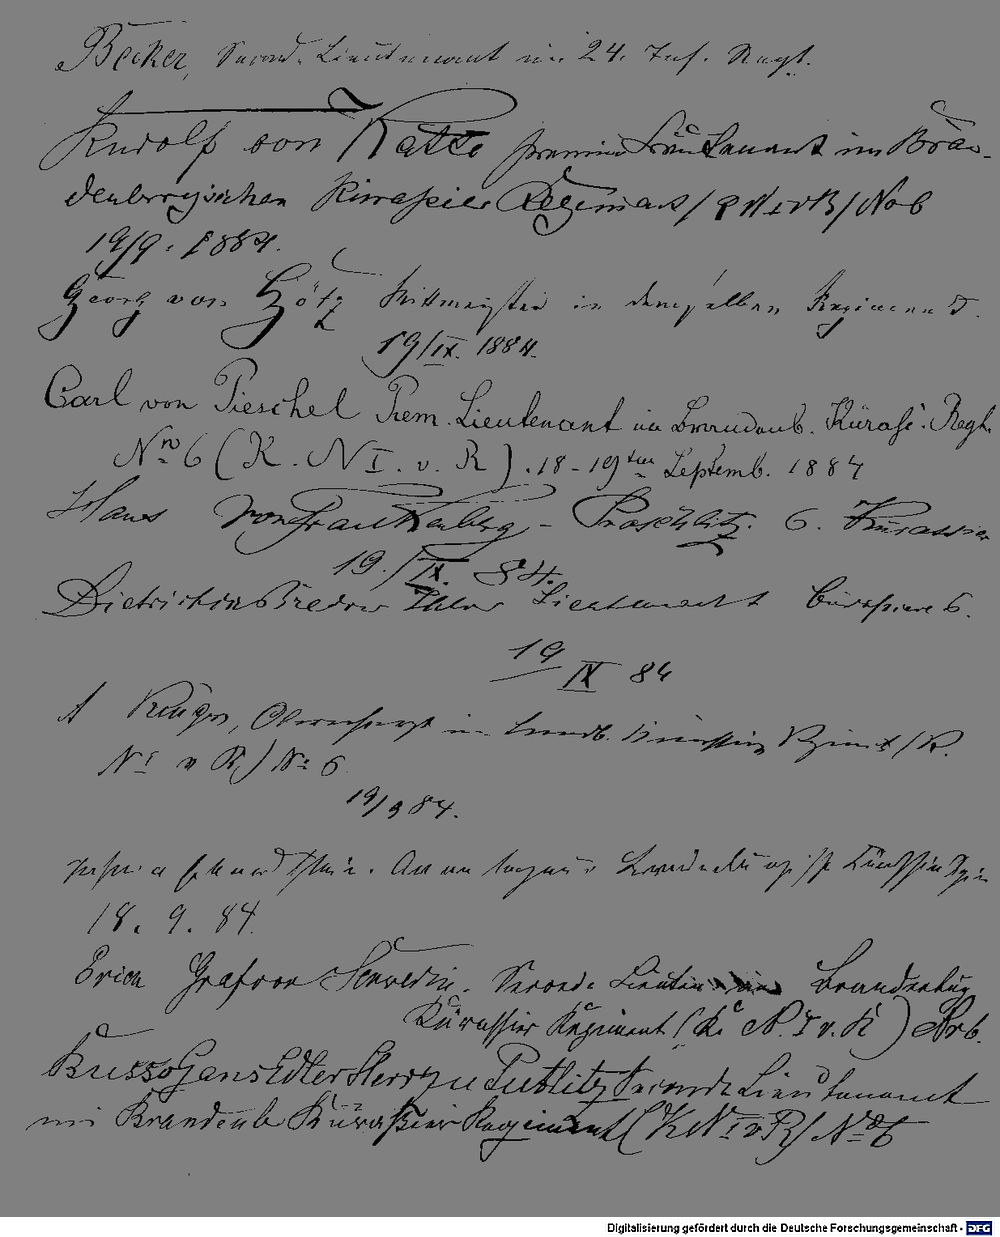 Becker, Second. Lieutenant im 24. Inf. Regt.
Rudolf von Katte premier Lieutenant im Bran-
denburgischen Kürassier Regiment / K N I v R / No 6
19/9. 1884.
Georg von Götz Rittmeister in demselben Regiment.
19/IX. 1884.
Carl von Pieschel Prem. Lieutenant im Brandenb. Kürass. Regt.
Nro 6 (K. N I. v. R). 18-19ten Septemb. 1884
Hans von Frankenberg-Proschlitz. 6. Kürassier
19./IX. 84.
Dietrich von Bredow Lieutenant Kürassiere 6.
19
IX 84
Krüger, Oberroßarzt im Brandb. Kürassier Regiment (K.
N I v R) No 6
19/9 84.
18. 9. 84.
Erich Graf von Schwerin. Seconde Lieutn im Brandenburg
Kürassier Regiment (K. N. I v. R) No 6.
Busso Gans Edler Herr zu Putlitz Seconde Lieutenant
im Brandenb Kürassier Regiment (K N I v R) No 6
Digitalisierung gefördert durch die Deutsche Forschungsgemeinschaft - DFG